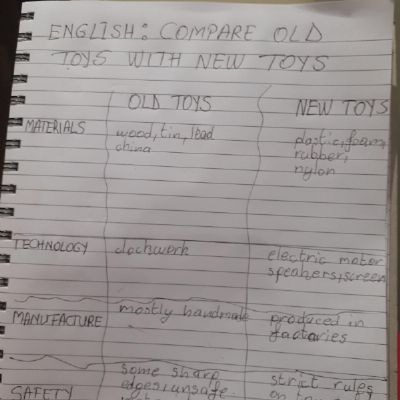 ENGLISH: COMPARE OLD
TOYS WITH NEW TOYS
OLD TOYS NEW TOYS
MATERIALS wood, tin, lead plastic, foam,
china rubber,
nylon
TECHNOLOGY clockwork electric motor
speakers, screen
MANUFACTURE mostly handmade produced in
factories
some sharp strict rules
SAFETY edges, unsafe on